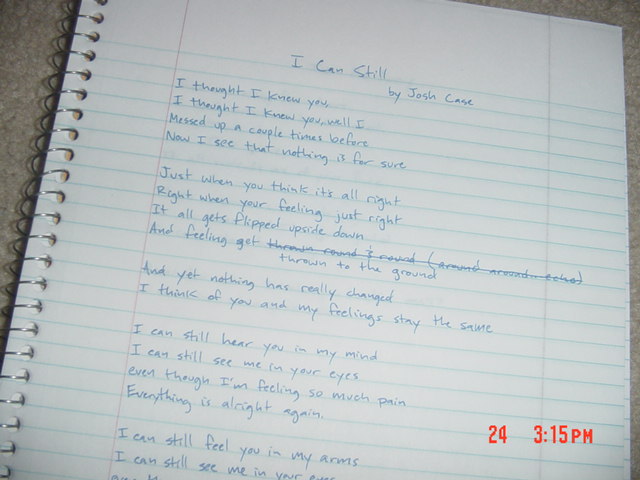 I Can Still
by Josh Case
I thought I knew you,
I thought I knew you, well I
Messed up a couple times before
Now I see that nothing is for sure
Just when you think it's all right
Right when your feeling just right
It all gets flipped upside down
And feeling get thrown round & round (around around - echo)
thrown to the ground
And yet nothing has really changed
I think of you and my feelings stay the same
I can still hear you in my mind
I can still see me in your eyes
even though I'm feeling so much pain
Everything is alright again.
I can still feel you in my arms
I can still see me in your eyes
24 3:15PM